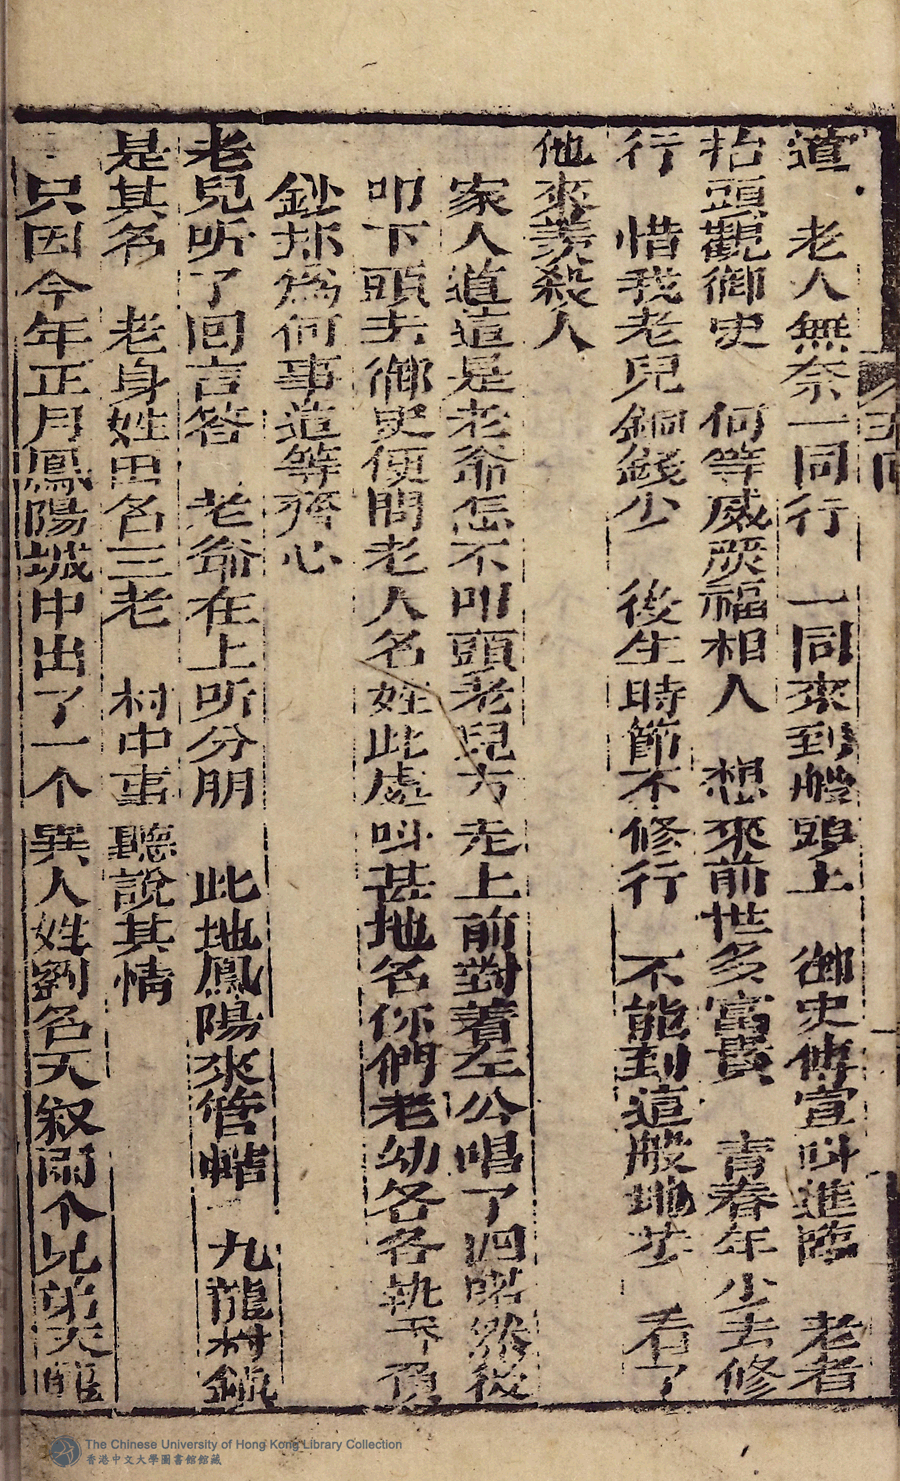 道 老人無奈一同行 一同來到般頭上 御史傳宣叫進 老者
抬頭觀御史 何等威灵福相人 想來前世多富貴 青春年少去修
行 惜我老兒銅錢少 後生時節不修行 不能到這般地步 看了
他來羨殺人
家人道這是老爺怎不叩頭老兒方走上前對着左公唱了 喏然後
叩下頭去御史便問老人名姓此處叫甚地名你們老幼各各執
鈔 為何事這等齊心
老兒听了回言答 老爺在上听分明 此地鳳陽來管 九龍村
是其名 老身姓田名三老 村中事 聽說其情
只因今年正月鳳陽城中出了一个異人姓劉名天叙兩个兄弟天
五回
The Chinese University of Hong Kong Library Collection
香港中文大學圖書館館藏